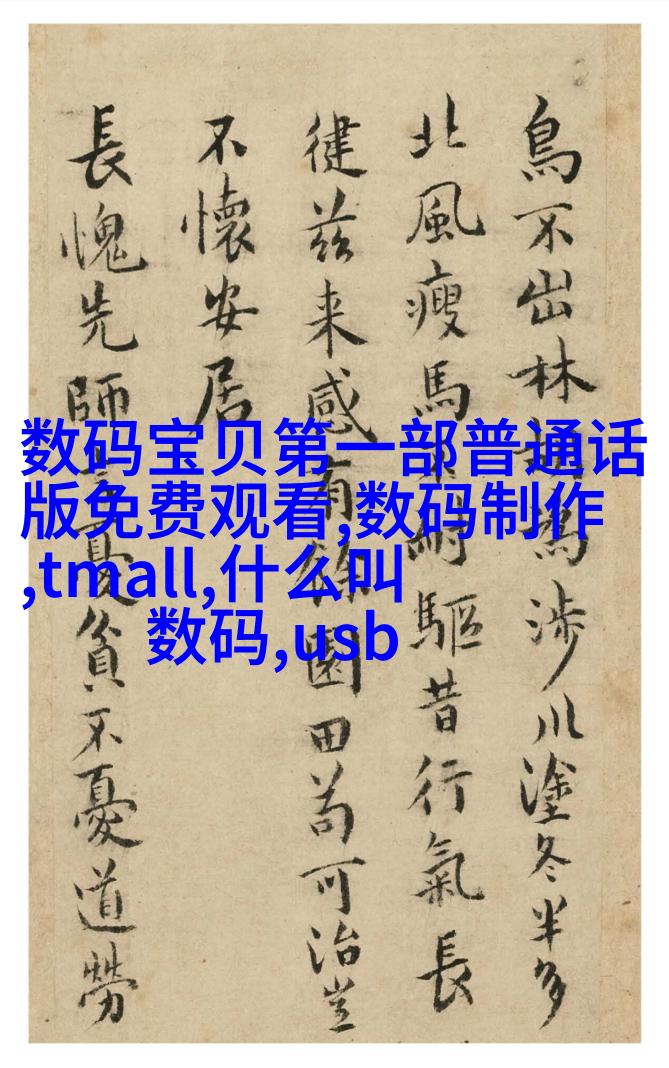 鳥不出林為涉川塗冬半多
北風瘦馬耐驅昔行氣長
徤茲来感有餘園田苟可治豈
不懷安居
長愧先師憂貧不憂道勞
数码宝贝第一部普通话
版免费观看,数码制作
,tmall,什么叫
数码,usb